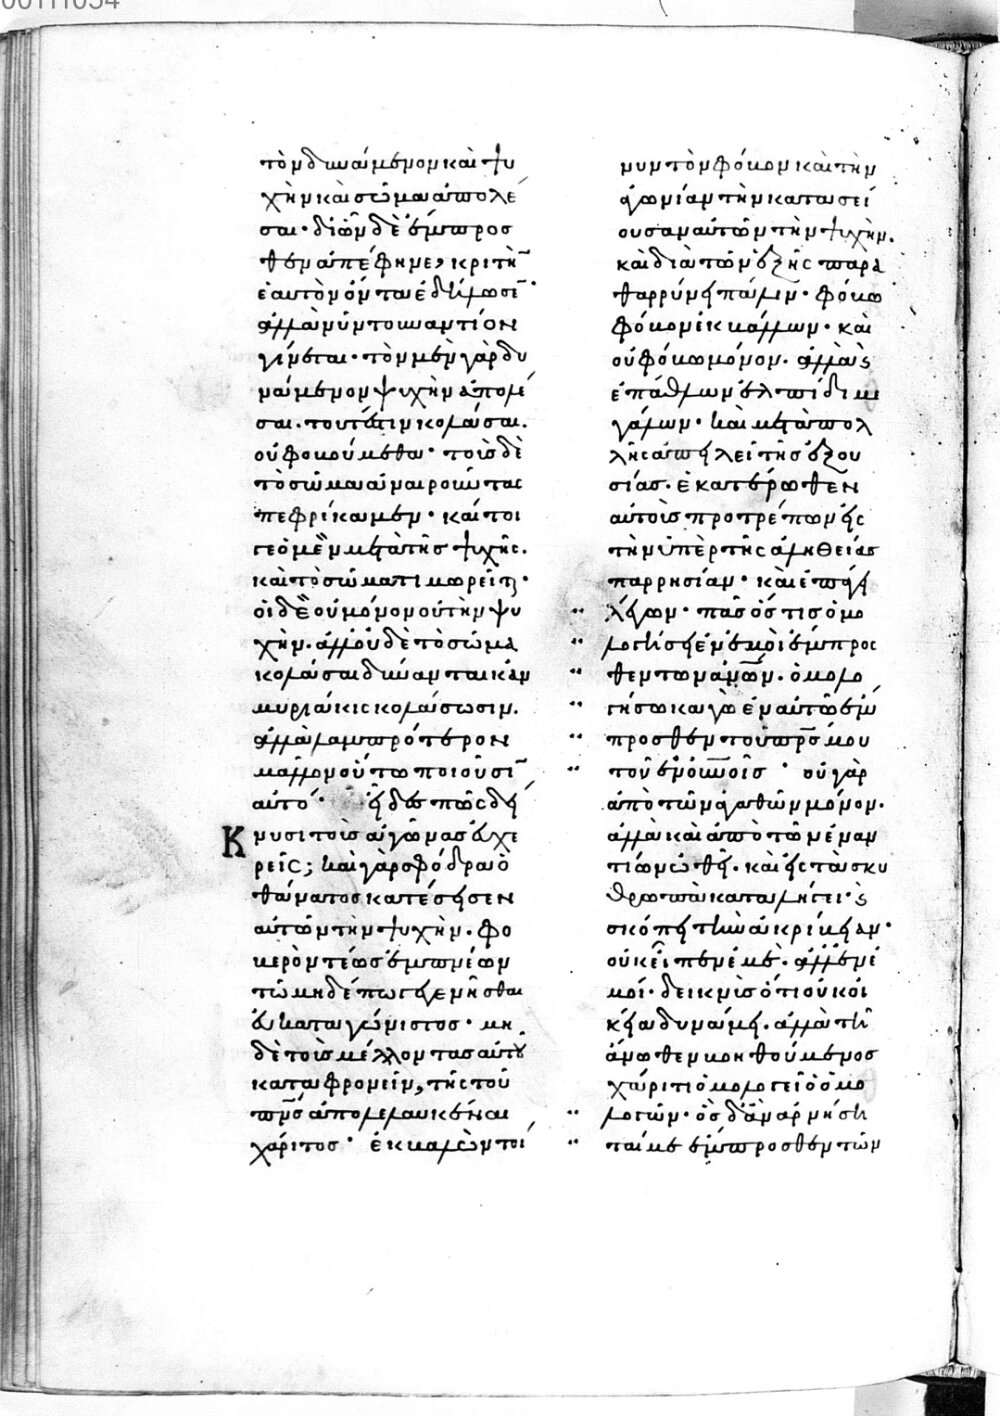 τὸν δυνάμενον καὶ ψυ
χὴν καὶ σῶμα ἀπολέ
σαι· δι ὧν δὲ ἔμπροσ
θεν ἀπέφηνε, κριτὴν
ἑαυτὸν ὄντα ἐδήλωσεν·
ἀλλὰ νῦν τοὐναντίον
γίνεται· τὸν μὲν γὰρ δυ
νάμενον ψυχὴν ἀπολέ
σαι· τουτέστιν κολάσαι·
οὐ φοβούμεθα· τοὺς δὲ
τὸ σῶμα ἀναιροῦντας
πεφρίκαμεν· καίτοι
γε ὁ μὲν μετὰ τῆς ψυχῆς·
καὶ τὸ σῶμα τιμωρεῖται·
οἱ δὲ οὐ μόνον οὐ τὴν ψυ
χήν· ἀλλ οὐδὲ τὸ σῶμα
κολάσαι δύνανται κἂν
μυριάκις κολάσωσιν·
ἀλλὰ λαμπρότερον
μᾶλλον οὕτω ποιοῦσιν
αὐτό· εἶδες πῶς δεί
Κνυσι τοὺς ἀγῶνας εὐχε
ρεῖς; καὶ γὰρ σφόδρα ὁ
θάνατος κατέσεισεν
αὐτῶν τὴν ψυχήν· φο
βερὸν τέως ἐμπνέων
τῷ μηδέπω γεγενῆσθαι
εὐκαταγώνιστος· μη
δὲ τοὺς μέλλοντας αὐτοῦ
καταφρονεῖν, τῆς τοῦ
πνς ἀπολελαυκέναι
χάριτος· ἐκβαλὼν τοί
νυν τὸν φόβον καὶ τὴν
ἀγωνίαν τὴν κατασεί
ουσαν αὐτῶν τὴν ψυχήν·
καὶ διὰ τῶν ἑξῆς παρα
θαρρύνει πάλιν· φόβω
φόβον ἐκβάλλων· καὶ
οὐ φόβω μόνον· ἀλλὰ καὶ
ἐπάθλων ἐλπίδι με
γάλων· καὶ μετὰ πολ
λῆς ἀπειλεῖ τῆς ἐξου
σίας· ἑκατέρωθεν
αὐτοὺς προτρέπων εἰς
τὴν ὑπὲρ τῆς ἀληθείας
παρρησίαν· καὶ ἐπάγει
λέγων· πᾶς ὅστις ὁμο
λογήσει ἐν ἐμοὶ ἔμπροσ
θεν τῶν ἀνῶν· ὁμολο
γήσω κἀγὼ ἐν αὐτῷ ἔμ
προσθεν τοῦ πρς μου
τοῦ ἐν οὐνοῖς· οὐ γὰρ
ἀπὸ τῶν ἀγαθῶν μόνον·
ἀλλὰ καὶ ἀπὸ τῶν ἐναν
τίων ὠθεῖ· καὶ εἰς τὰ σκυ
θρωπὰ καταλήγει· καὶ
σκόπει τὴν ἀκρίβειαν·
οὐκ εἶπεν ἐμέ· ἀλλ ἐν ἐ
μοί· δεικνὺς ὅτι οὐκ οἰ
κείᾳ δυνάμει· ἀλλὰ τῇ
ἄνωθεν βοηθούμενος
χάριτι ὁμολογεῖ ὁ ὁμο
λογῶν· ὃς δ ἂν ἀρνήση
ταί με ἔμπροσθεν τῶν